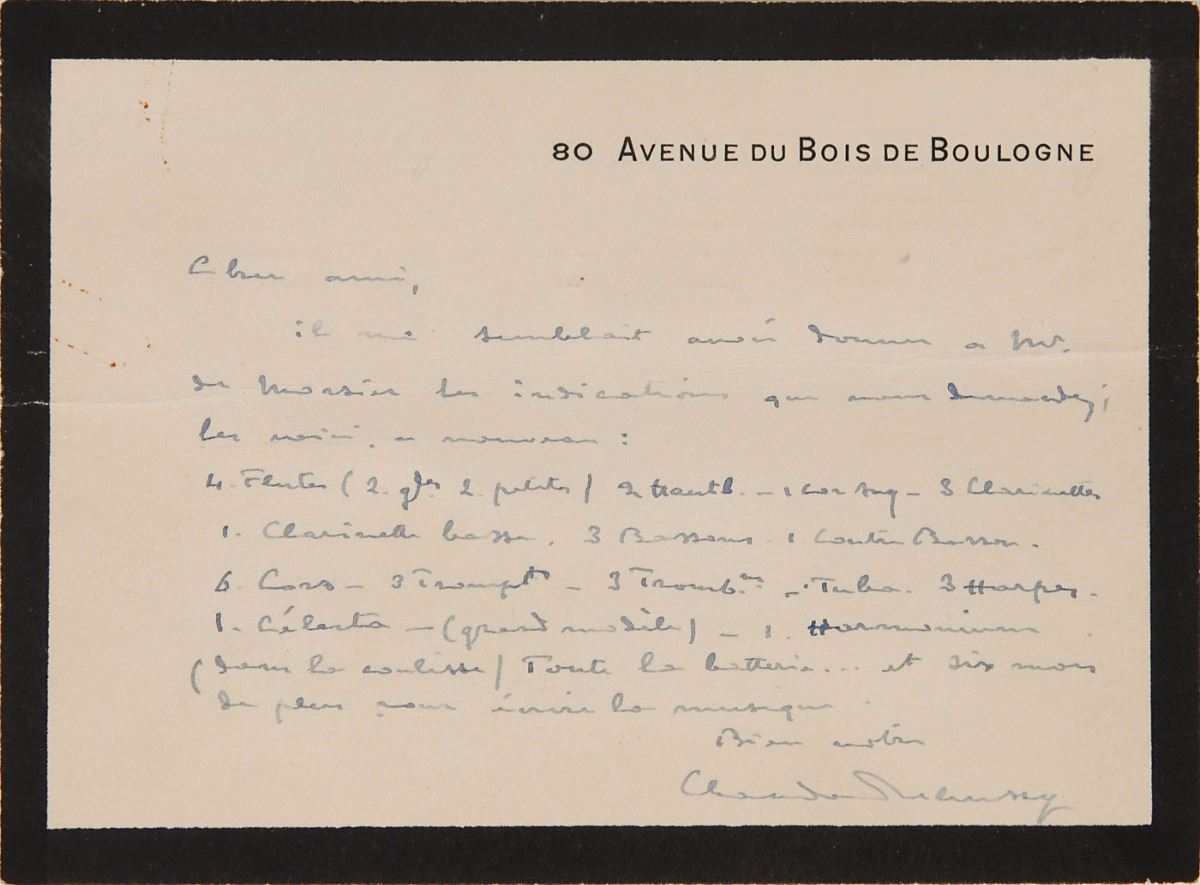 80 AVENUE DU BOIS DE BOULOGNE
Cher ami,
il me semblait avoir donner a Mr.
de Morsier les indications que vous demandez;
les voici, a nouveau :
4. Flutes ( 2. gdes 2. petites ) 2 Hautb. — 1 Cor ang — 3 Clarinettes
1. Clarinette basse. 3 Bassons 1 Contre Basson.
6. Cors — 3 Trompt — 3 Tromb. — 1 Tuba. 3 Harpes.
1. Célesta — (grand modèle) — 1. Harmonium
(dans la coulisse) Toute la batterie... et six mois
de plus pour écrire la musique.
Bien votre
Claude Debussy